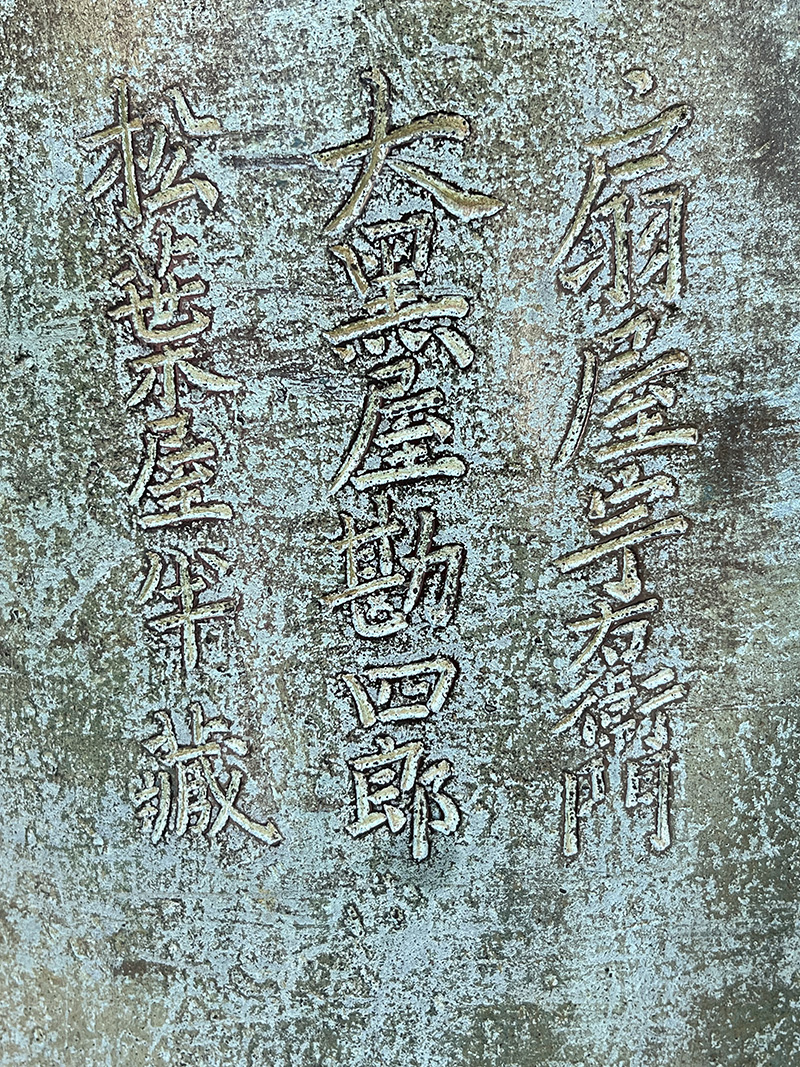 扇屋宇右衛門
大黒屋勘四郎
松葉屋半藏